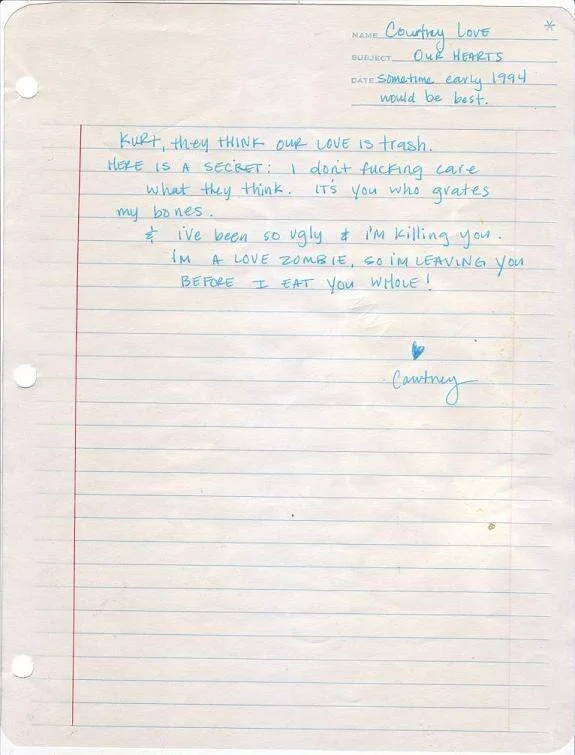 NAME Courtney Love *
SUBJECT OUR HEARTS
DATE sometime early 1994
would be best.
KURT, they THINK OUR LOVE IS trash.
HERE IS A SECRET: I don't fucking care
what they think. IT'S you who grates
my bones.
& i've been so ugly & i'M killing you.
i'M A LOVE ZOMBIE, SO i'M LEAVING YOU
BEFORE I EAT YOU WHOLE!
Courtney